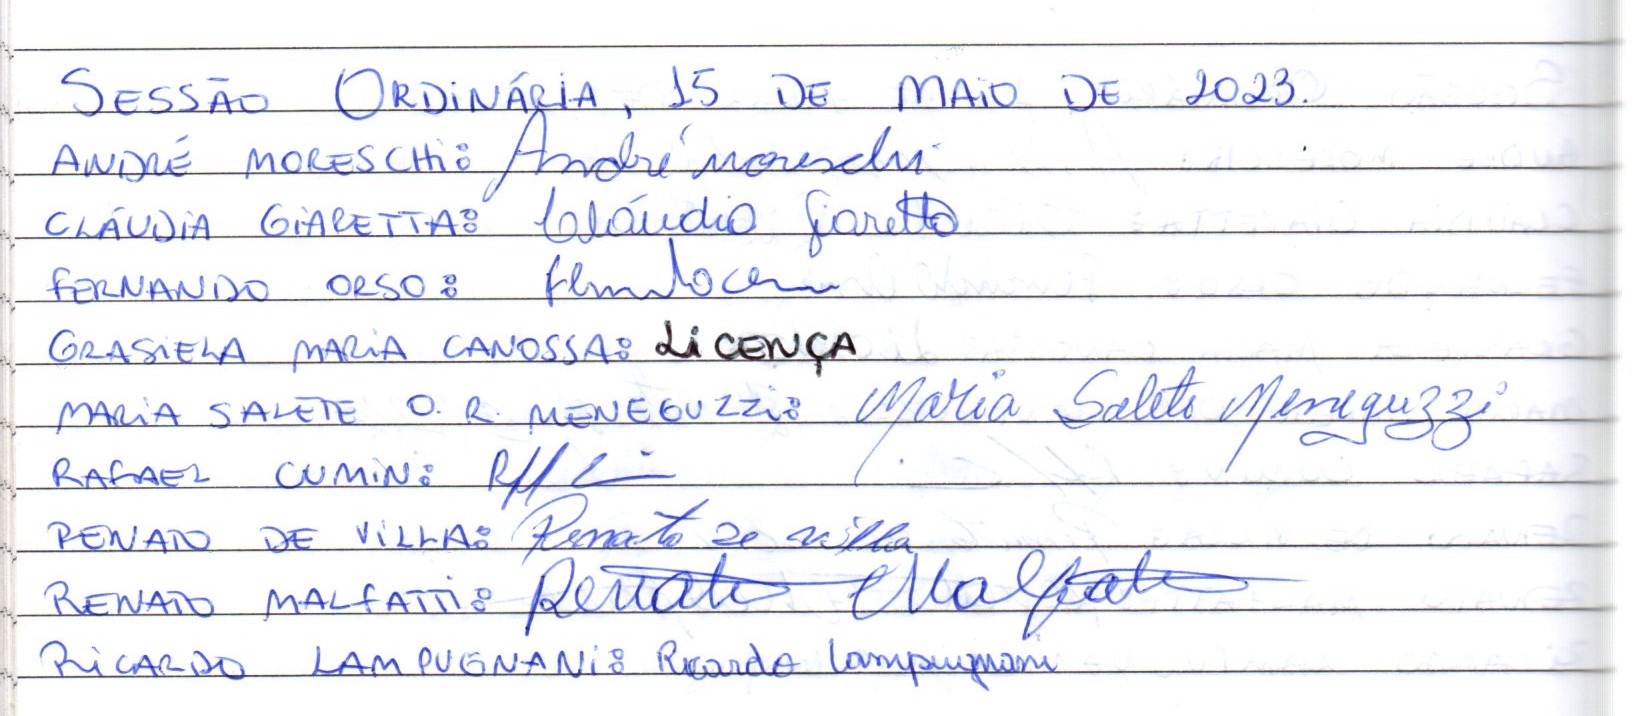 SESSÃO ORDINÁRIA, 15 DE MAIO DE 2023.
ANDRÉ MORESCHI: André Moreschi
CLÁUDIA GIARETTA: Cláudia Giaretta
FERNANDO ORSO:
GRASIELA MARIA CANOSSA: LICENÇA
MARIA SALETE O. R. MENEGUZZI: Maria Salete Meneguzzi
RAFAEL CUMIN:
RENATO DE VILLA: Renato de villa
RENATO MALFATTI: Renato Malfatti
RICARDO LAMPUGNANI: Ricardo Lampugnani